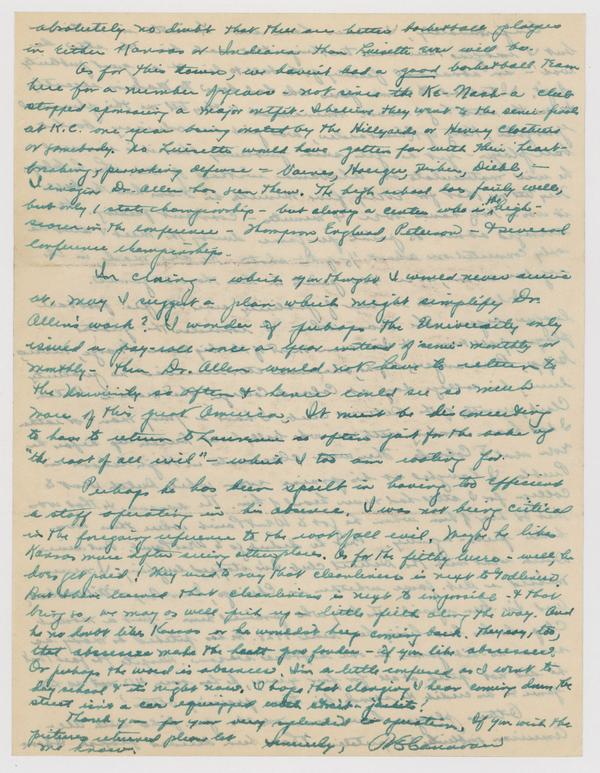 absolutely no doubt that there are better basketball players
in either Kansas or Indiana than Luisetti ever will be.
As for this town, we haven't had a good basketball team
here for a number of years - not since the Ke-Nash-a club
stopped sponsoring a major outfit. I believe they went to the semi-finals
at K.C. one year being ousted by the Hillyards or Henry Clothiers
or somebody. No Luisetti would have gotten far with their heart-
breaking, provoking defense - Barnes, Diehl, -
I imagine Dr. Allen has seen them. The high school does fairly well,
but only 1 state championship - but always a center who is the high-
scorer in the conference - Thompson, Englund, Peterson - & several
conference championships.
In closing - which you thought I would never arrive
at, may I suggest a plan which might simplify Dr.
Allen's work? I wonder if perhaps the University only
issued a pay-roll once a year instead of semi-monthly or
monthly - then Dr. Allen would not have to return to
the University so often & hence could see so much
more of this great America. It must be disconcerting
to have to return to Lawrence so often just for the sake of
"the root of all evil" - which I too am rooting for.
Perhaps he has been spoilt in having too efficient
a staff operating in his absence. I was not being critical
in the foregoing reference to the root of all evil. Maybe he likes
Kansas more after seeing other places. As for the filthy lucre - well, he
does get paid! They used to say that cleanliness is next to Godliness.
But I have learned that cleanliness is next to impossible - & that
being so, we may as well pick up a little filth along the way. And
he no doubt likes Kansas or he wouldn't keep coming back. They say, too,
that absence makes the heart grow fonder - if you like absences.
Or perhaps the word is absence. I'm a little confused as I went to
day school & it's night now. I hope that clanging I hear coming down the
street isn't a car equipped with strait-jackets!
Thank you for your very splendid co-operation. If you wish the
pictures returned please let Sincerely, Canavan
me know.